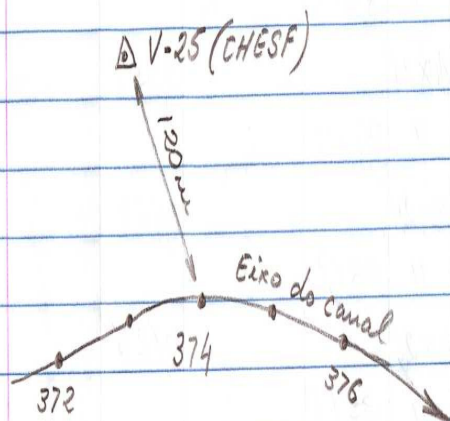 V-25 (CHESF)
120 m
Eixo do canal
374
376
372